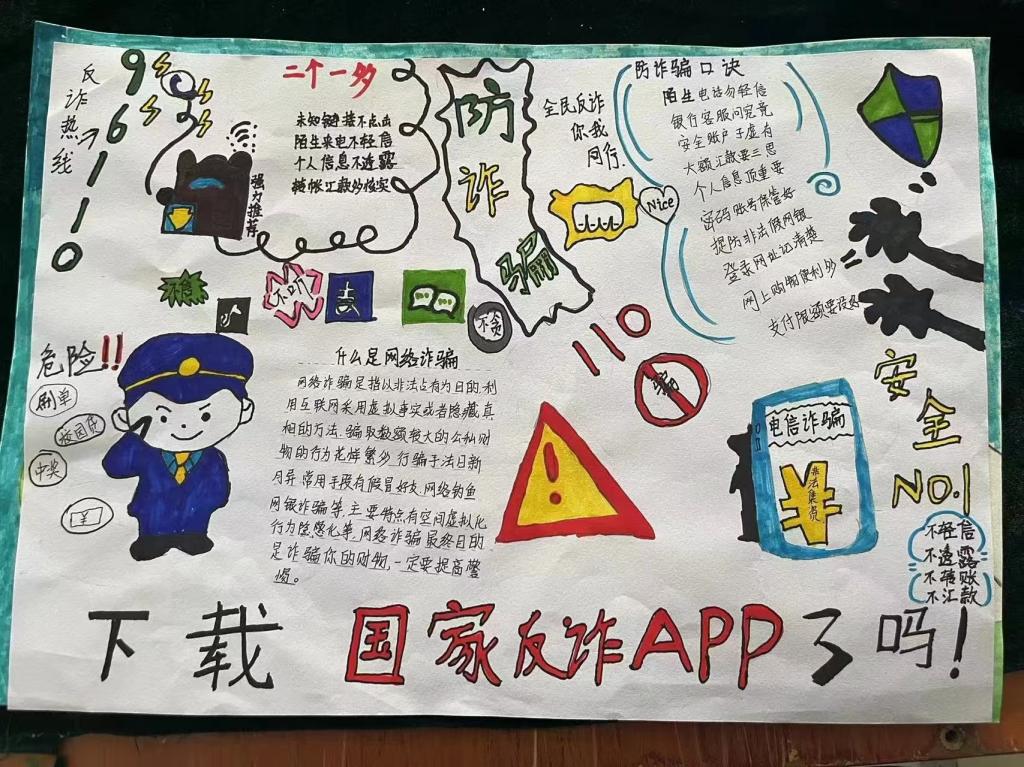 反诈热线
96110
强力推荐
二个一多
未知链接不点击
陌生来电不轻信
个人信息不透露
转帐汇款多核实
防诈骗
全民反诈
你我
同行.
Nice
防诈骗口诀
陌生电话勿轻信
银行客服问究竟
安全账户子虚有
大额汇款要三思
个人信息顶重要
密码账号保管好
提防非法假网银
登录网址记清楚
网上购物便利多
支付限额要设好
不听
不贪
危险!!
刷单
校园贷
中奖
什么是网络诈骗
网络诈骗是指以非法占有为目的,利
用互联网采用虚拟事实或者隐藏真
相的方法,骗取数额较大的公私财
物的行为,花样繁多,行骗手法日新
月异,常用手段有假冒好友、网络钓鱼
网银诈骗等,主要特点有空间虚拟化
行为隐蔽化等,网络诈骗最终目的
是诈骗你的财物,一定要提高警
惕。
110
骗
电信诈骗
非法集资
安全
NO.1
不轻信
不透露
不转账
不汇款
下载国家反诈APP了吗!